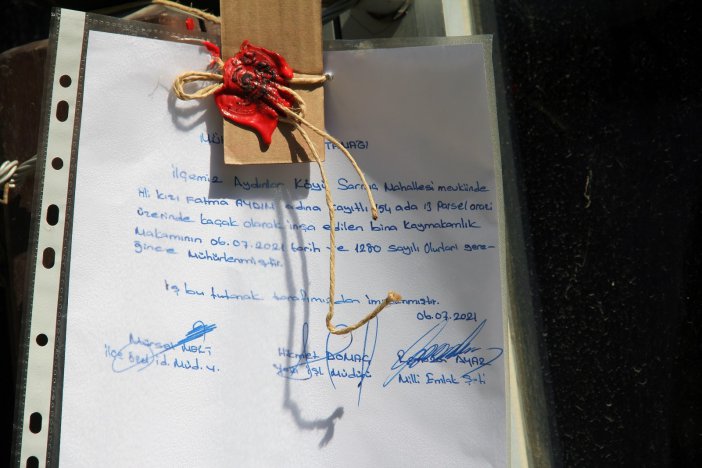 İlçemiz Aydınlar Köyü Sarma Mahallesi mevkiinde
Ali kızı Fatma AYDIN adına kayıtlı 154 ada 13 Parsel arazi
üzerinde kaçak olarak inşa edilen bina Kaymakamlık
Makamının 06.07.2021 tarih ve 1280 sayılı Olurları gere-
ğince Mühürlenmiştir.
İş bu tutanak tarafımızdan imzalanmıştır.
06.07.2021
Mürsel
Hikmet
İlçe Özel İd. Müd. V.
Yazı İşl. Müdürü
Milli Emlak Şefi